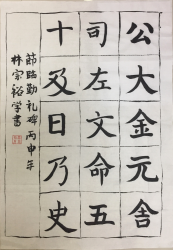 公大金元舍
司左文命五
十及日乃史
節臨勤礼碑丙申年
林宗裕学書